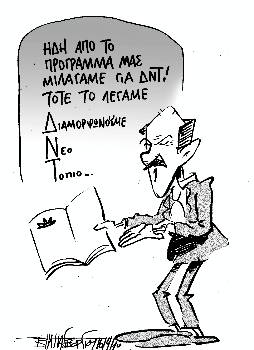 ΗΔΗ ΑΠΟ ΤΟ
ΠΡΟΓΡΑΜΜΑ ΜΑΣ
ΜΙΛΑΓΑΜΕ ΓΙΑ ΔΝΤ!
ΤΟΤΕ ΤΟ ΛΕΓΑΜΕ
ΔΙΑΜΟΡΦΩΝΟΥΜΕ
ΝΕΟ
ΤΟΠΙΟ...